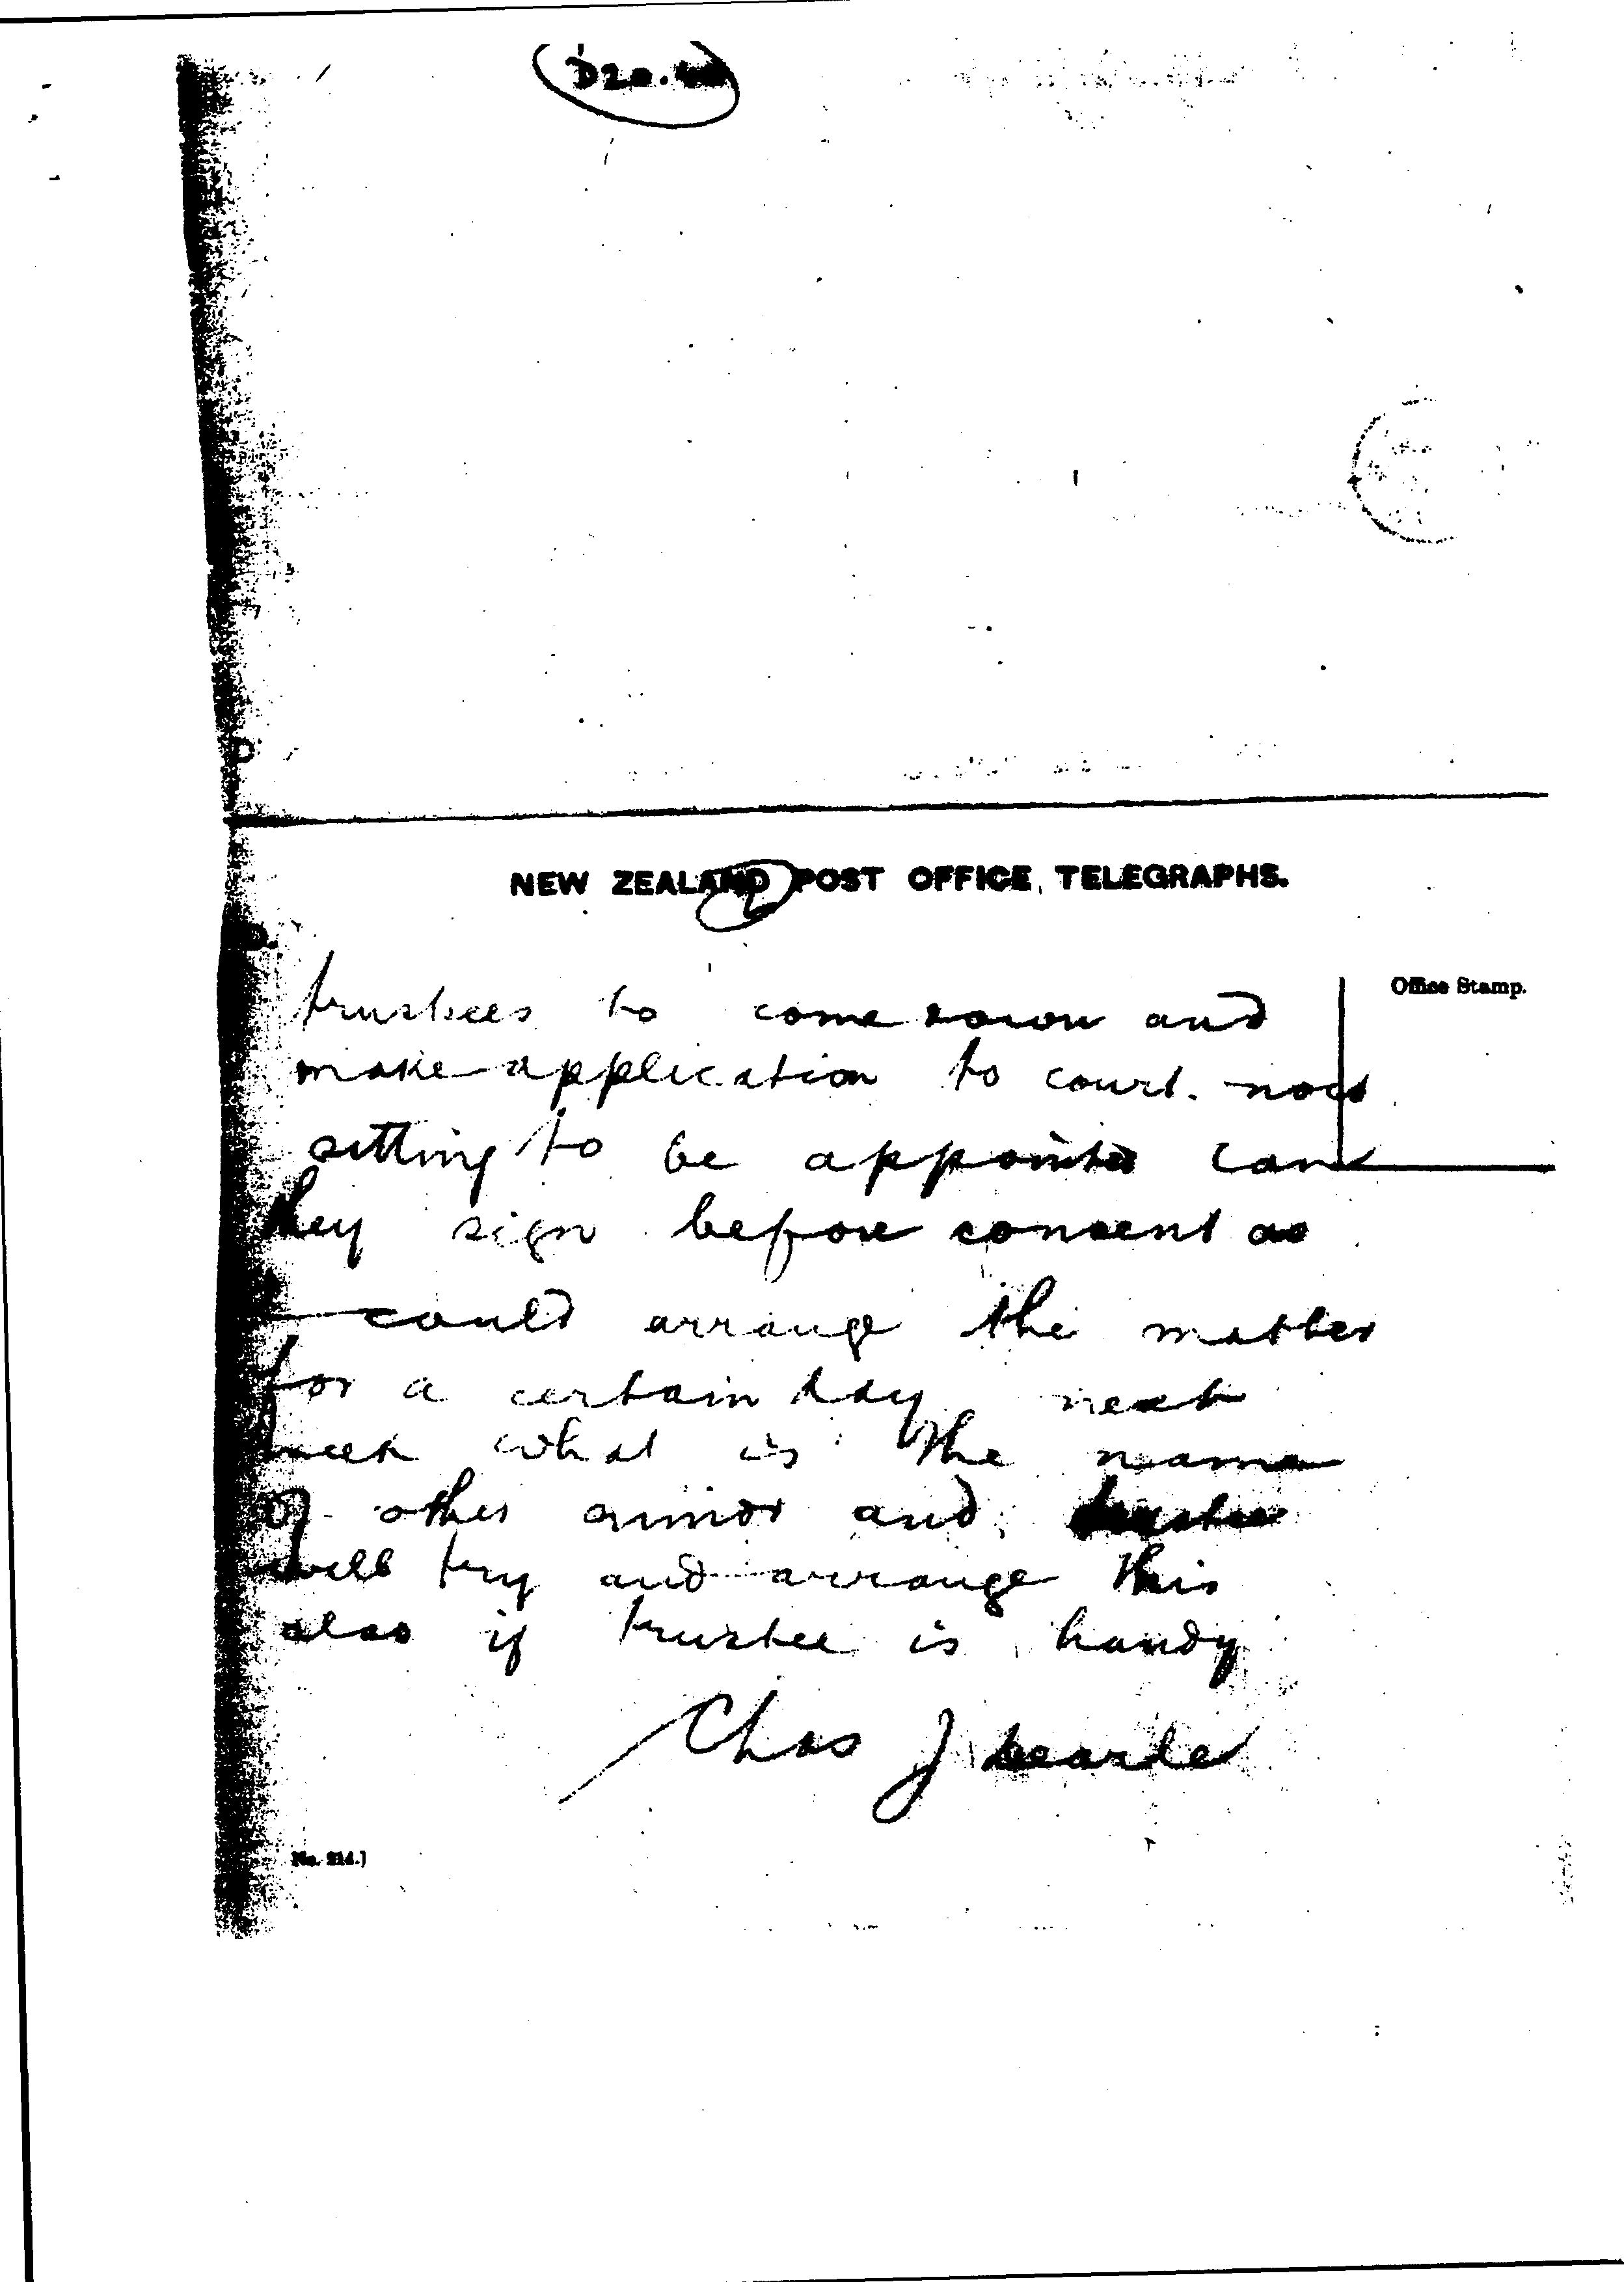 NEW ZEALAND POST OFFICE TELEGRAPHS.
2
Office Stamp.
trustees to come down and
make application to court now
sitting to be appointed can
they sign before consent as
I could arrange the matter
for a certain day next
week what is the name
of other minor and trustee
will try and arrange this
also if trustee is handy
Chas J
No. 214.]